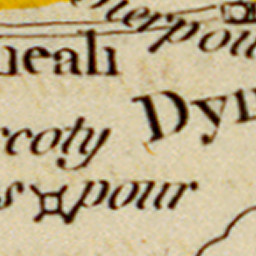 terpou
ueali
Dyn
rcoty
s pour